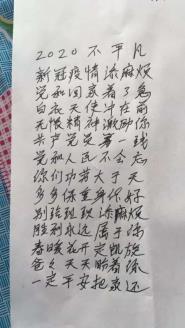 2020不平凡
新冠疫情添麻烦
党和国家着了急
白衣天使斗在前
无惧精神激励你
共产党员署一线
党和人民不会忘
你们功劳大于天
多多保重身体好
别给医院添麻烦
胜利永远属于你
春暖花开定凯旋
爸爸天天盼着你
一定平安把家还